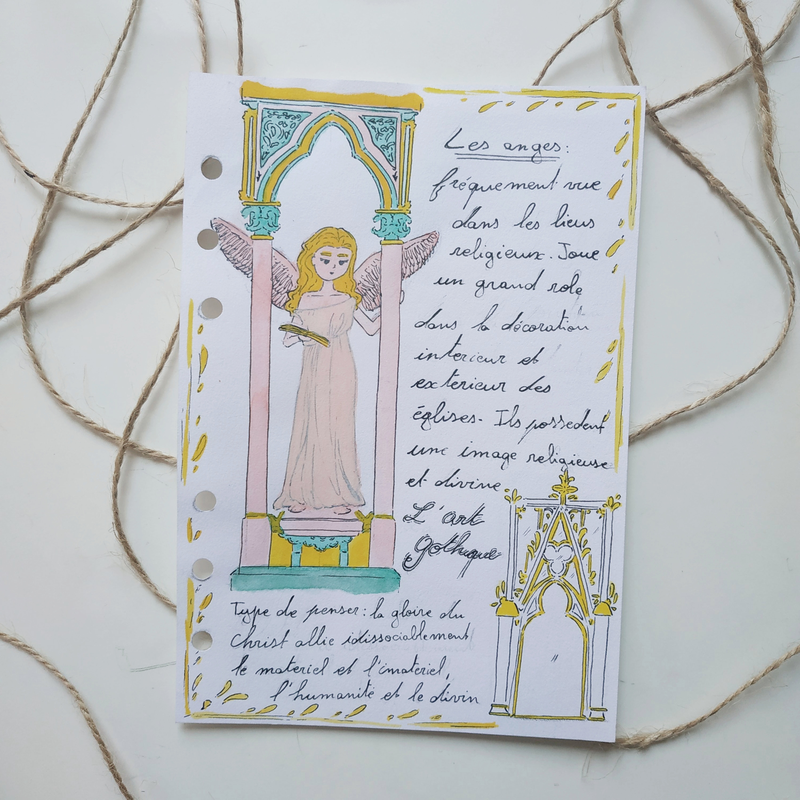 Les anges:
fréquement vue
dans les lieus
religieux. Joue
un grand role
dans la décoration
interieur et
exterieur des
églises. Ils possedent
une image religieuse
et divine
L'art
gothique
Type de penser: la gloire du
Christ allie idissociablement
le materiel et l'imateriel,
l'humanité et le divin